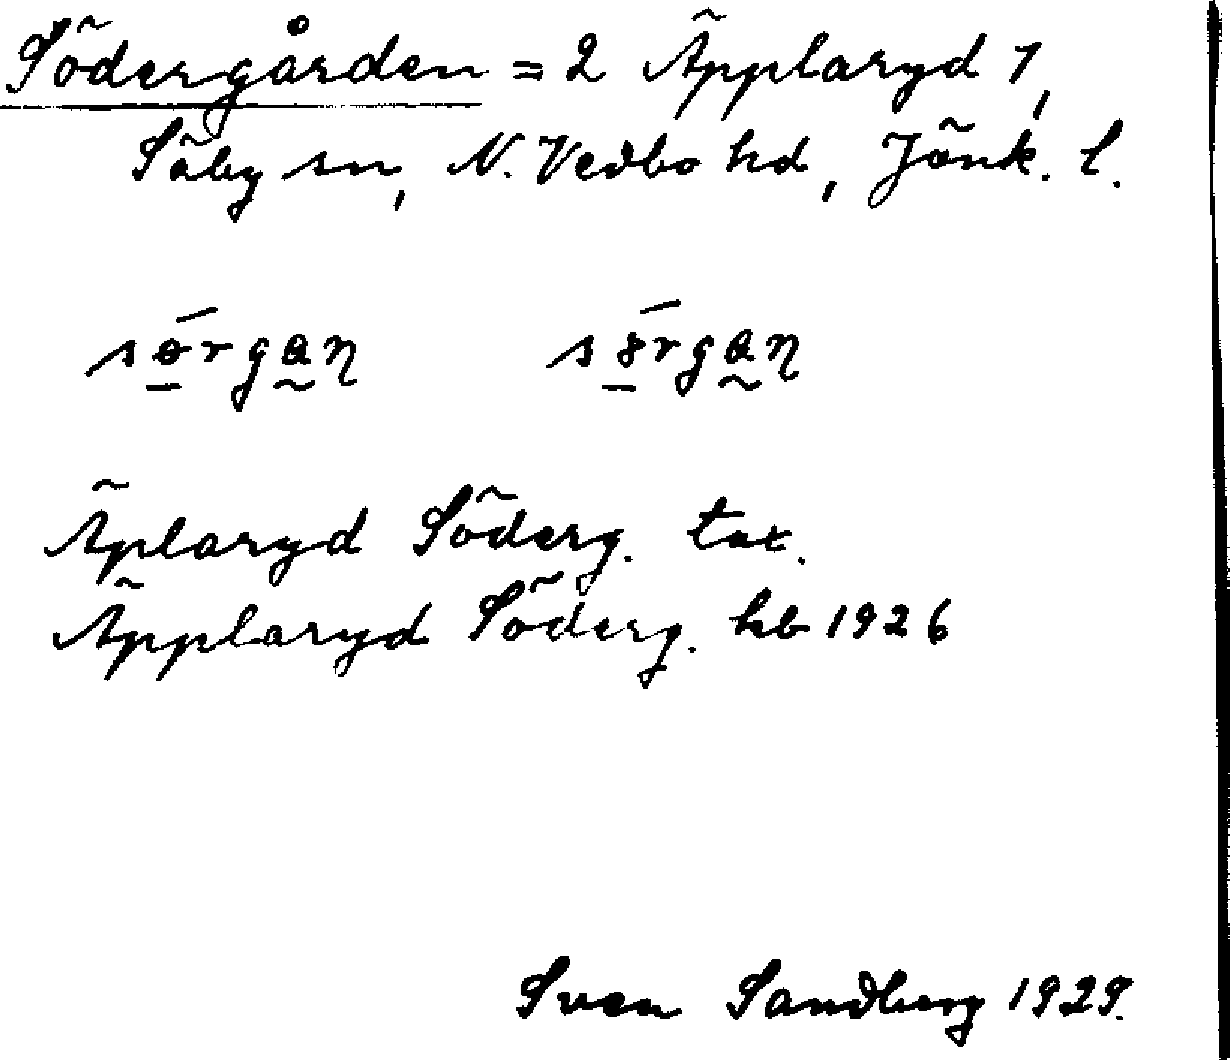 Södergården = 2 Äpplaryd 1,
Säby sn, N. Vedbo hd, Jönk. l.
Äplaryd Söderg. tax.
Äpplaryd Söderg. hb 1926
Sven Sandberg 1929.